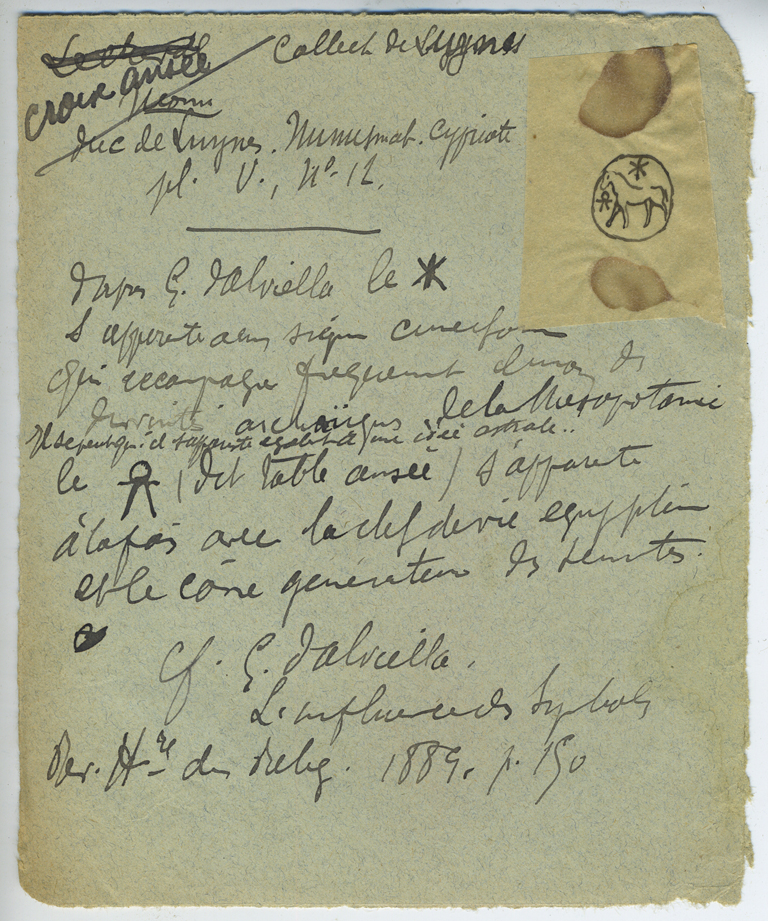 Collect de Luynes
croix ansée
duc de Luynes. Numismat. Cypriote
pl. V., N° 12.
d'apres G. d'Alviella le
s'apparente aux signe cuneiform
qui accompagne frequemment
divinités archaïques de la Mesopotamie
Il se peut qu'il s'apparente egalement a une idée astrale..
le (dit table ansée) s'apparente
à la fois avec la clef de vie egyptien
et le cône générateur des semites.
Cf. G. d'Alviella.
L'influence des Symbols
Rev. Hre des Relig. 1889. p. 150